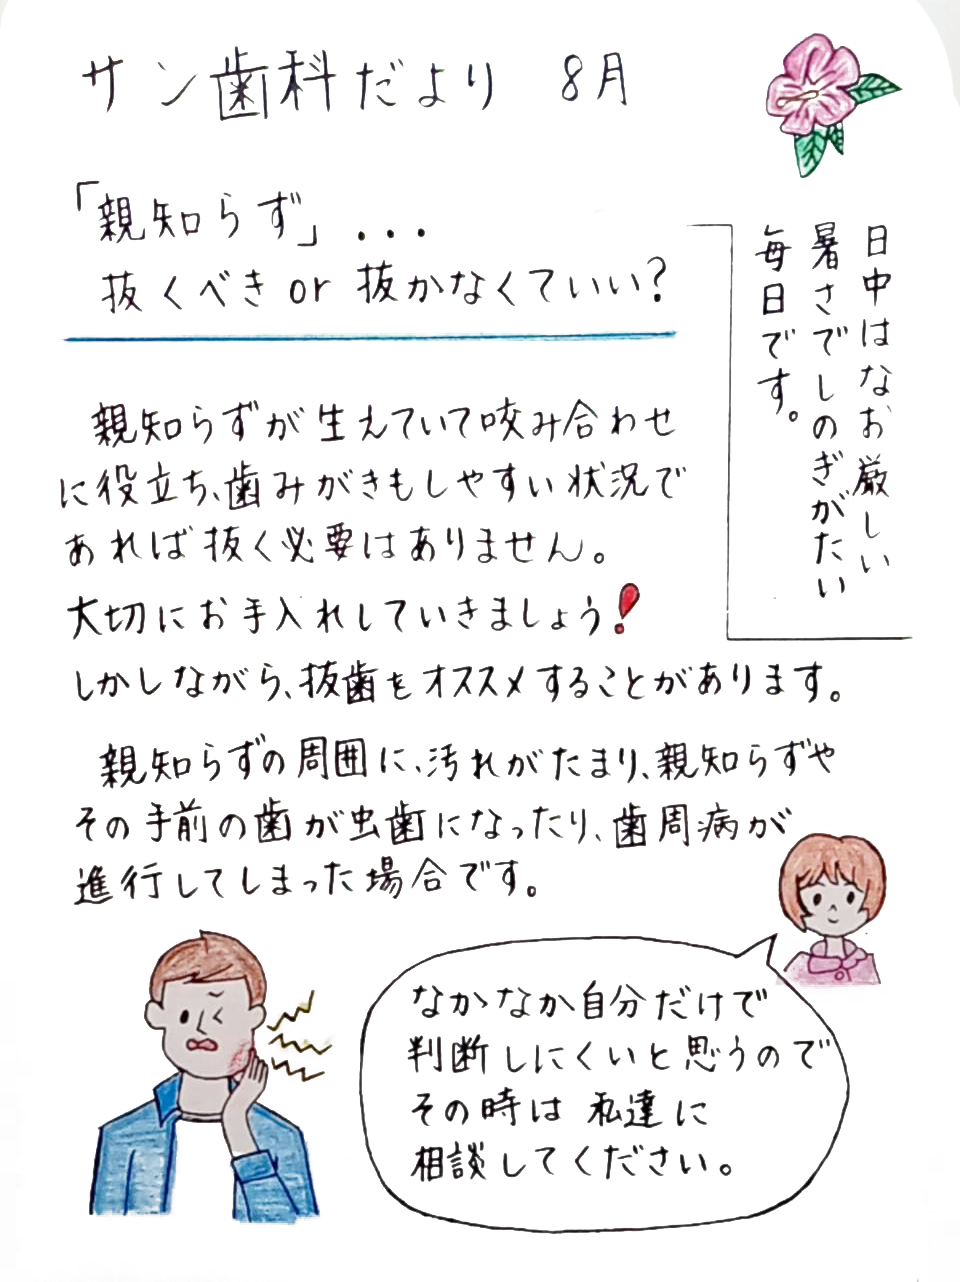 サン歯科だより 8月
「親知らず」...
抜くべき or 抜かなくていい?
日中はなお厳しい
暑さでしのぎがたい
毎日です。
親知らずが生えていて咬み合わせ
に役立ち、歯みがきもしやすい状況で
あれば抜く必要はありません。
大切にお手入れしていきましょう!
しかしながら、抜歯をオススメすることがあります。
親知らずの周囲に、汚れがたまり、親知らずや
その手前の歯が虫歯になったり、歯周病が
進行してしまった場合です。
なかなか自分だけで
判断しにくいと思うので
その時は 私達に
相談してください。